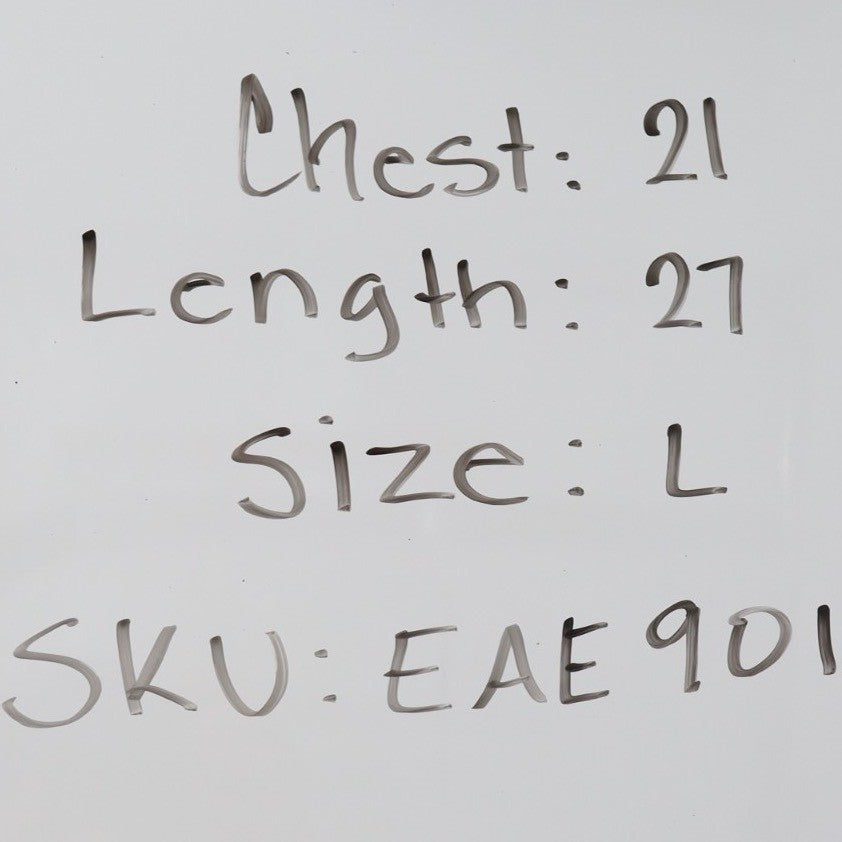 Chest: 21
Length: 27
Size: L
SKU: EAE901